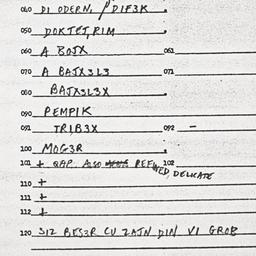 040 DI ODERN, / DIF3K
050 DOKTCT, RIM
060 A BOJX 061
070 A BAJX3L3 071
080 BAJX3L3X
090 PEMPIK
091 TRIB3X 092 —
100 MOG3R
101 + QAP. ALSO REFINED, DELICATE 102
110 +
111 +
112 +
120 3IZ BES3R CU ZAJN DIN VI GROB